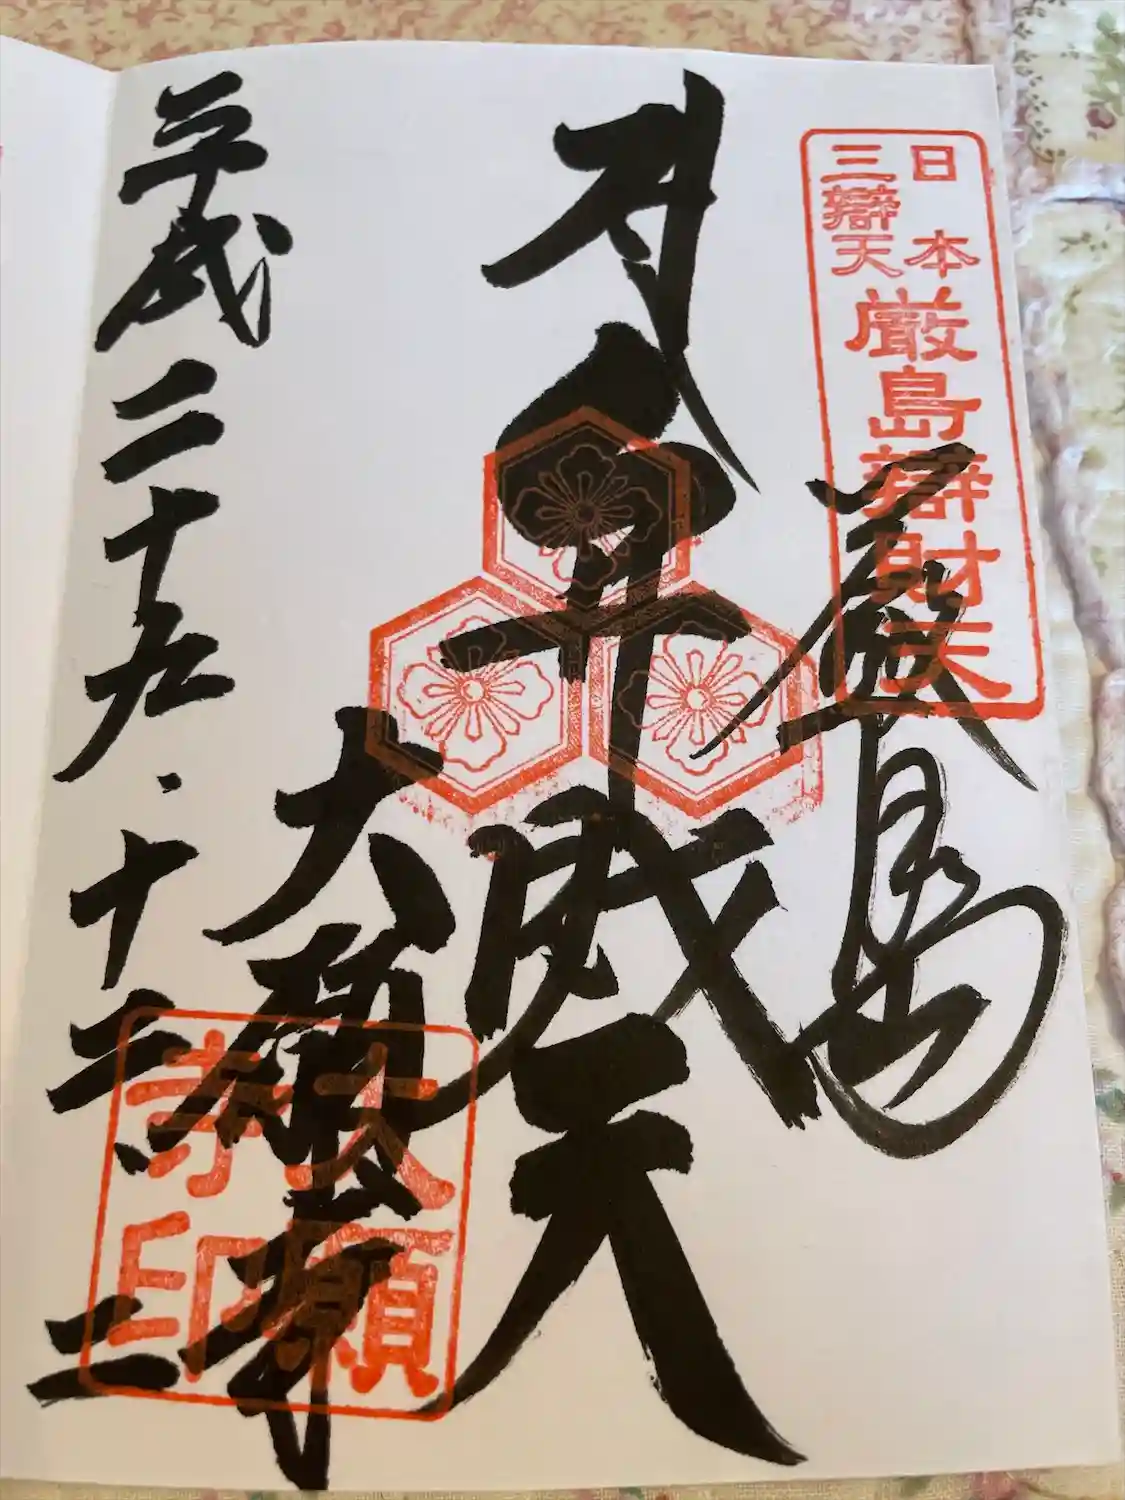 日本
三辯天
厳島辯財天
厳島
弁財天
大願寺
大願
寺印
平成二十九・十二・二